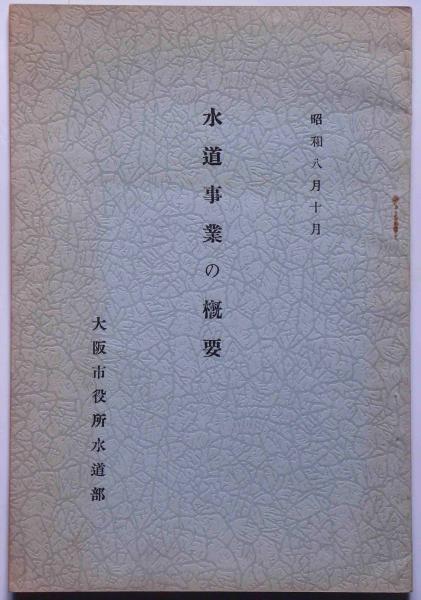 昭和八月十月
水道事業の概要
大阪市役所水道部